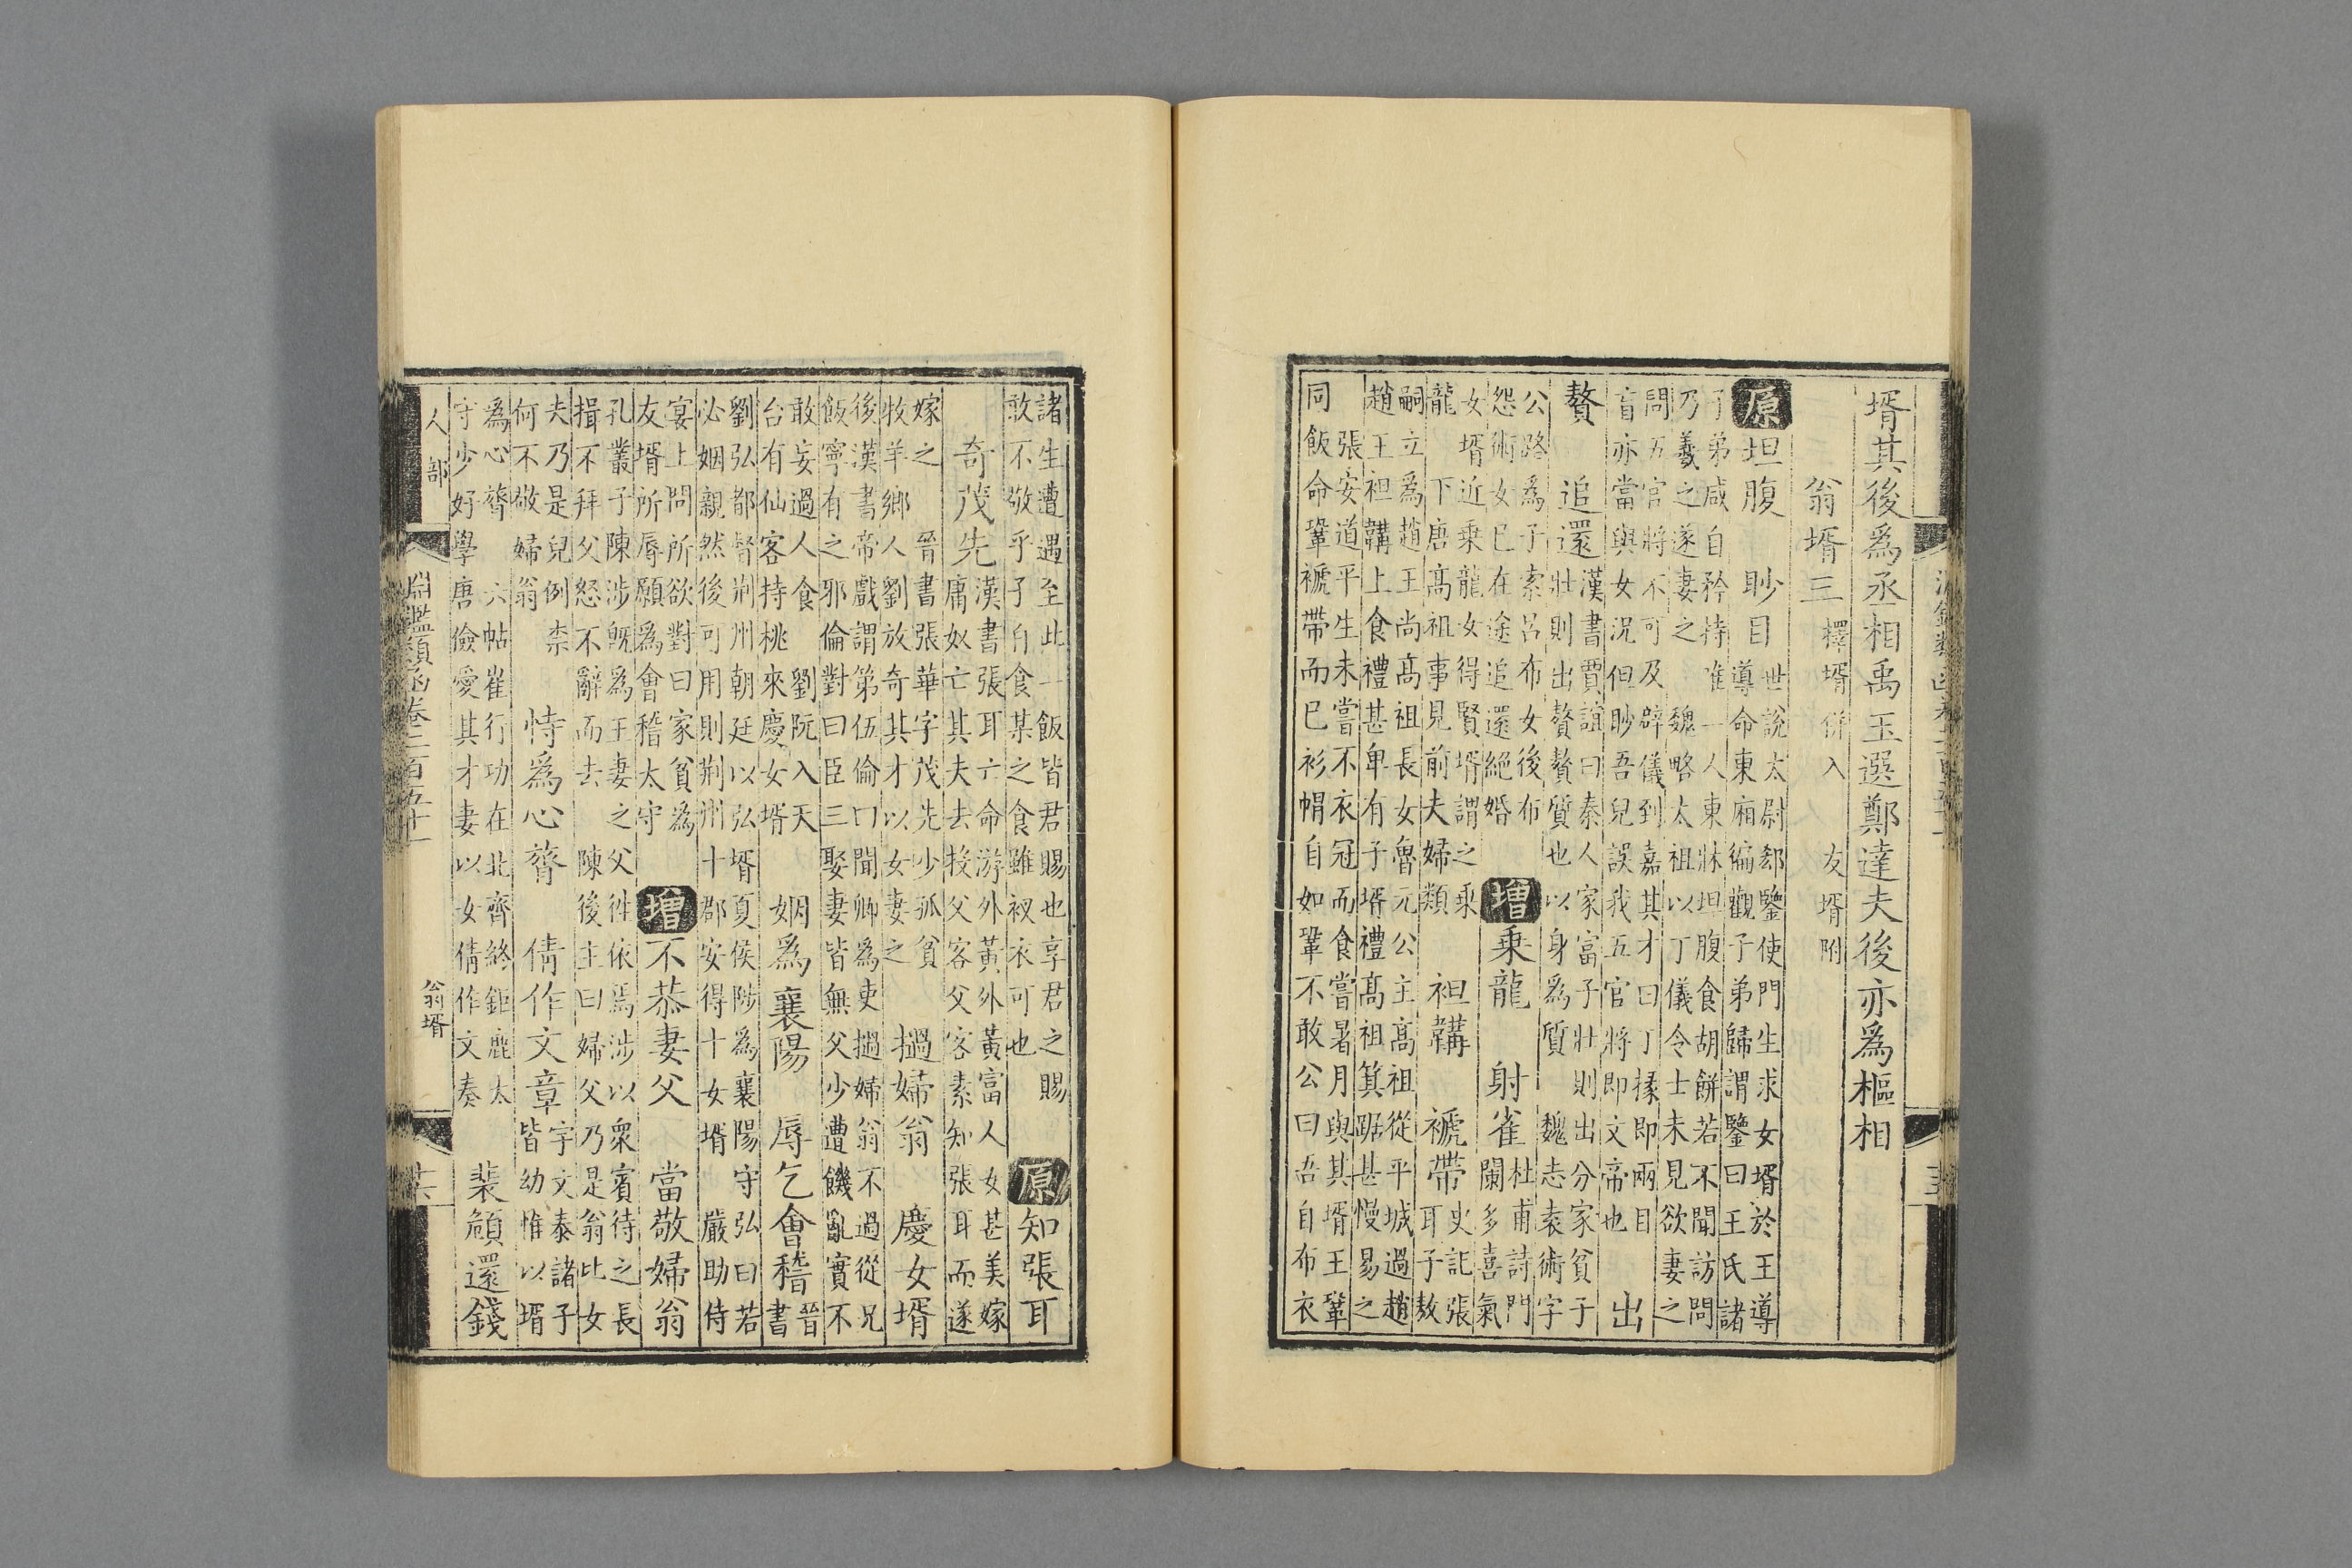 壻其後爲丞相禹玉選鄭達夫後亦爲樞相
翁壻三 擇壻併入 友壻附
原 坦腹 眇目 世說太尉郗鑒使門生求女壻於王導
導命東廂編觀子弟歸謂鑒曰王氏諸
子弟咸自矜持唯一人東牀坦腹食胡餅若不聞訪問
乃羲之遂妻之 魏略太祖以丁儀令士未見欲妻之
問五官將不可及辟儀到嘉其才曰丁掾即兩目
盲亦當與女況但眇吾兒誤我五官將即文帝也 出
贅 追還 漢書賈誼曰秦人家富子壯則出分家貧子
壯則出贅贅質也以身爲質 魏志袁術字
公路爲子索呂布女後布
怨術女已在途追還絕婚
增 乗龍 射雀 杜甫詩門
闌多喜氣
女壻近乗龍女得賢壻謂之乗
龍 下唐高祖事見前夫婦類
袒韝 褫帶 史記張
耳子敖
嗣立爲趙王尚高祖長女魯元公主高祖從平城過趙
趙王袒韝上食禮甚卑有子壻禮高祖箕踞甚慢易之
張安道平生未嘗不衣冠而食嘗暑月與其壻王鞏
同飯命鞏褫帶而已衫帽自如鞏不敢公曰吾自布衣
諸生遭遇至此一飯皆君賜也享君之賜
敢不敬乎子自食某之食雖衩衣可也
原 知張耳
奇茂先 漢書張耳亡命游外黃外黃富人女甚美嫁
庸奴亡其夫去投父客父客素知張耳而遂
嫁之 晉書張華字茂先少孤貧
牧羊鄉人劉放奇其才以女妻之
撾婦翁 慶女壻
後漢書帝戲謂第伍倫曰聞卿爲吏撾婦翁不過從兄
飯寧有之邪倫對曰臣三娶妻皆無父少遭饑亂實不
敢妄過人食 劉阮入天
台有仙客持桃來慶女壻
姻爲襄陽 辱乞會稽 晉
書
劉弘都督荆州朝廷以弘壻夏侯陟爲襄陽守弘曰若
必姻親然後可用則荆州十郡安得十女壻 嚴助侍
宴上問所欲對曰家貧爲
友壻所辱願爲會稽太守
增 不恭妻父 當敬婦翁
孔叢子陳涉旣爲王妻之父徃依焉涉以衆賓待之長
揖不拜父怒不辭而去 陳後主曰婦父乃是翁比女
夫乃是兒例柰
何不敬婦翁
恃爲心膂 倩作文章 宇文泰諸子
皆幼惟以壻
爲心膂 六帖崔行功在北齊終鉅鹿太
守少好學唐儉愛其才妻以女倩作文奏
裴頠還錢
人部 淵鑑類函卷二百五十一 翁壻